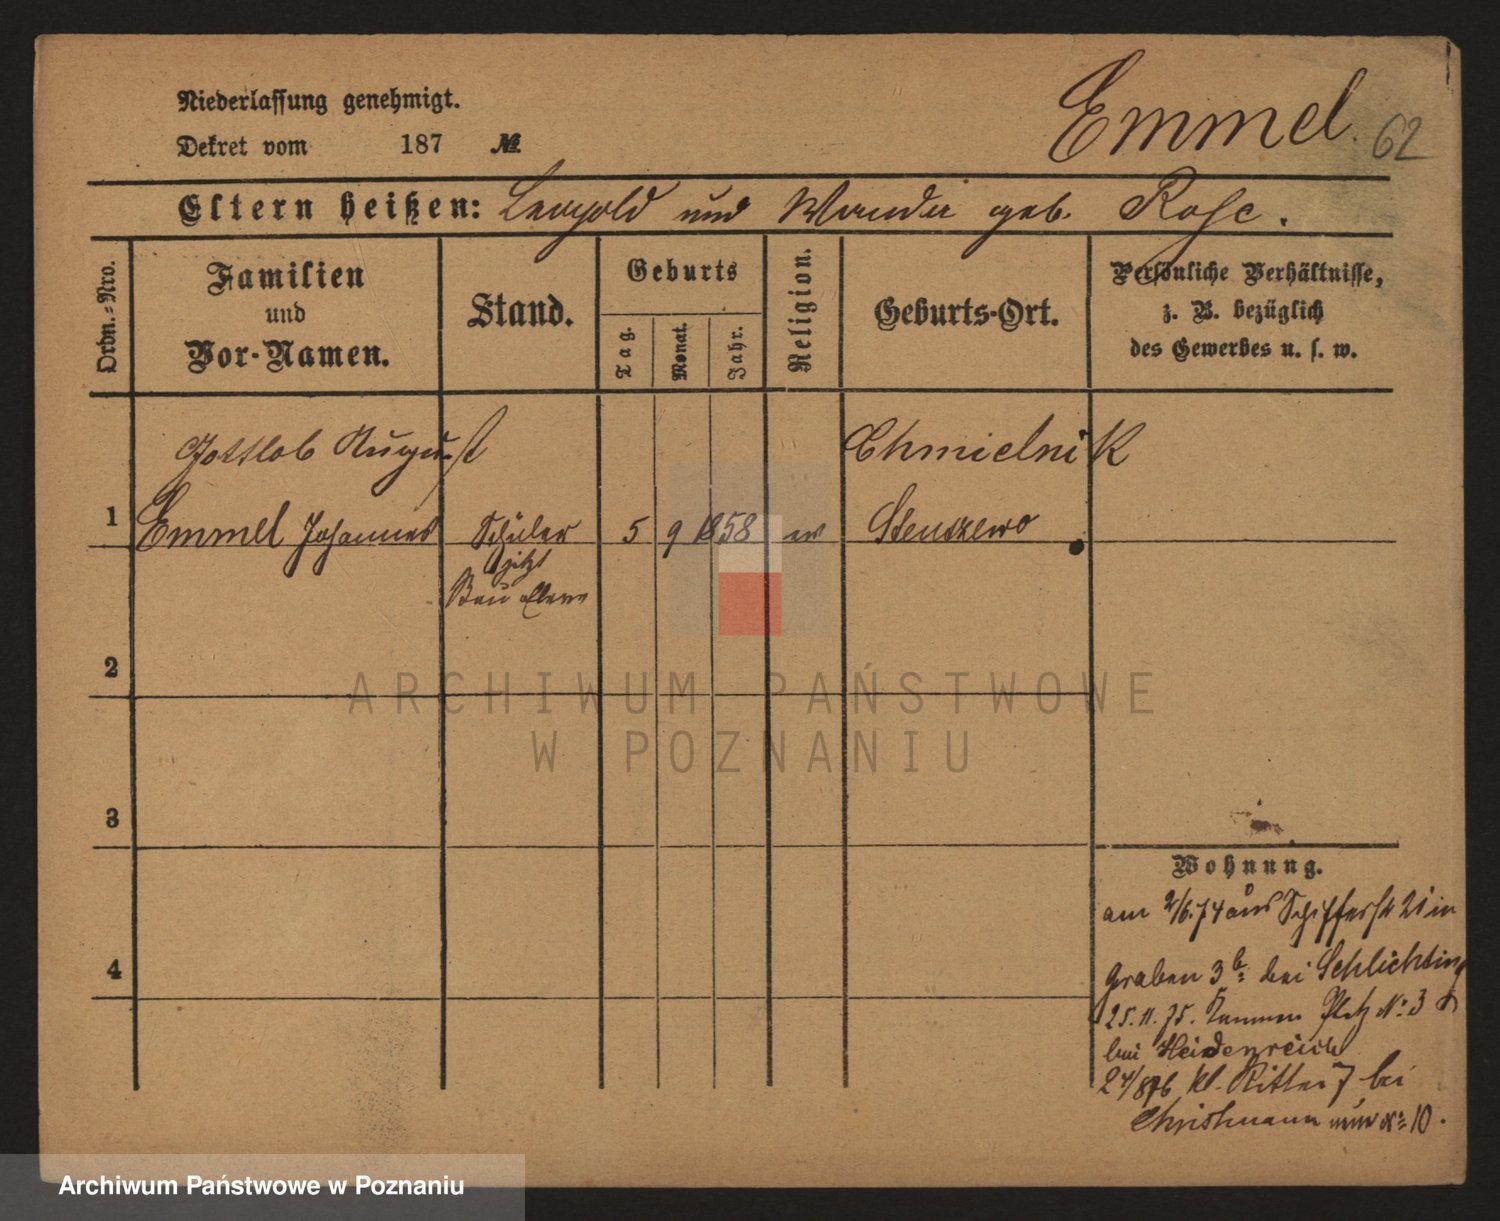 Niederlassung genehmigt.
Dekret vom 187 №
Emmel
62
Eltern heißen: Leopold und Wanda geb. Rose.
Ordn.-Nro.
Familien
und
Vor-Namen.
Stand.
Geburts
Tag.
Monat.
Jahr.
Religion.
Geburts-Ort.
Persönliche Verhältnisse,
z. B. bezüglich
des Gewerbes u. s. w.
Gottlob August
Chmielnik
1 Emmel Johannes Schüler 5 9 1858 ev Stenszewo
jetzt
Bau
2
3
4
Wohnung.
am 2/6.74 aus Schifferstr 21 in
Graben 3b bei Schlichting
25.11.75. Platz No 3
bei Heidenreich
24/8 76 kl. Ritter 7 bei
Christmann nun No 10.
ARCHIWUM PAŃSTWOWE
W POZNANIU
Archiwum Państwowe w Poznaniu